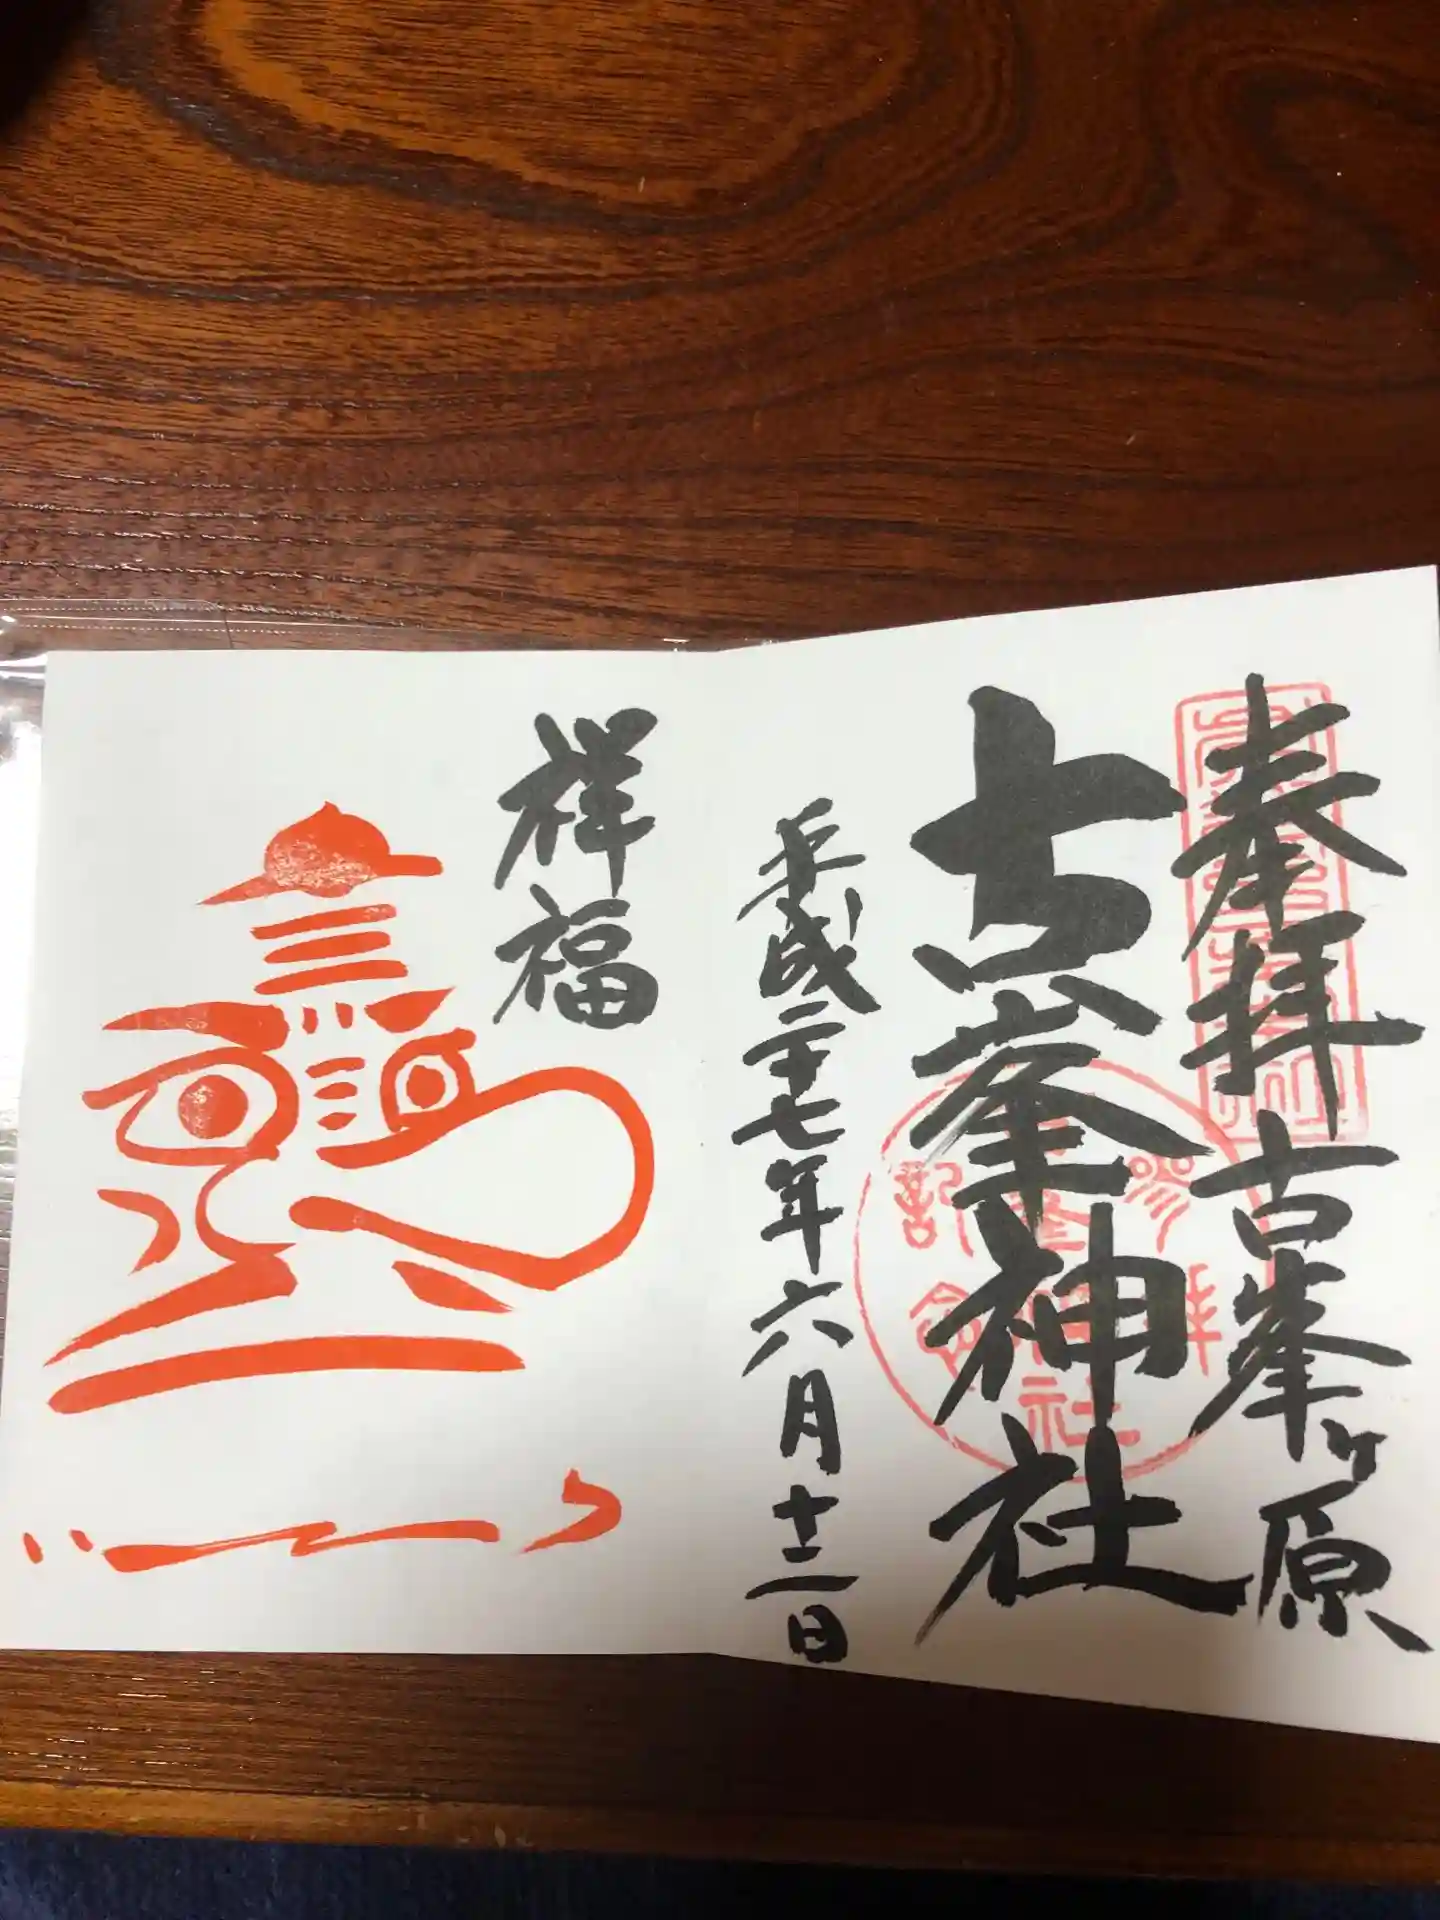 奉拝 古峯ヶ原
古峯神社
平成二十七年六月十二日
祥福